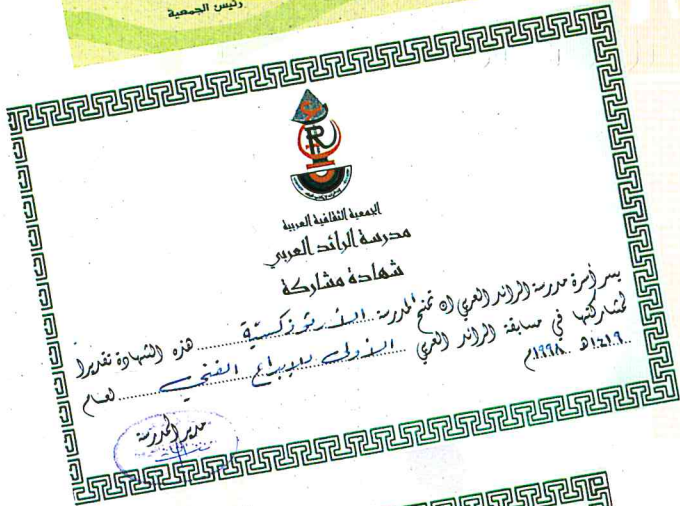 رئيس الجمعية
الجمعية الثقافية العربية
مدرسة الرائد العربي
شهادة مشاركة
يسر أسرة مدرسة الرائد العربي ان تمنح المدرسة الأرثوذكسية هذه الشهادة تقديرا
لمشاركتها في مسابقة الرائد العربي الأولى للإبداع الفني لعام
١٤١٩هـ ١٩٩٨م
مدير المدرسة